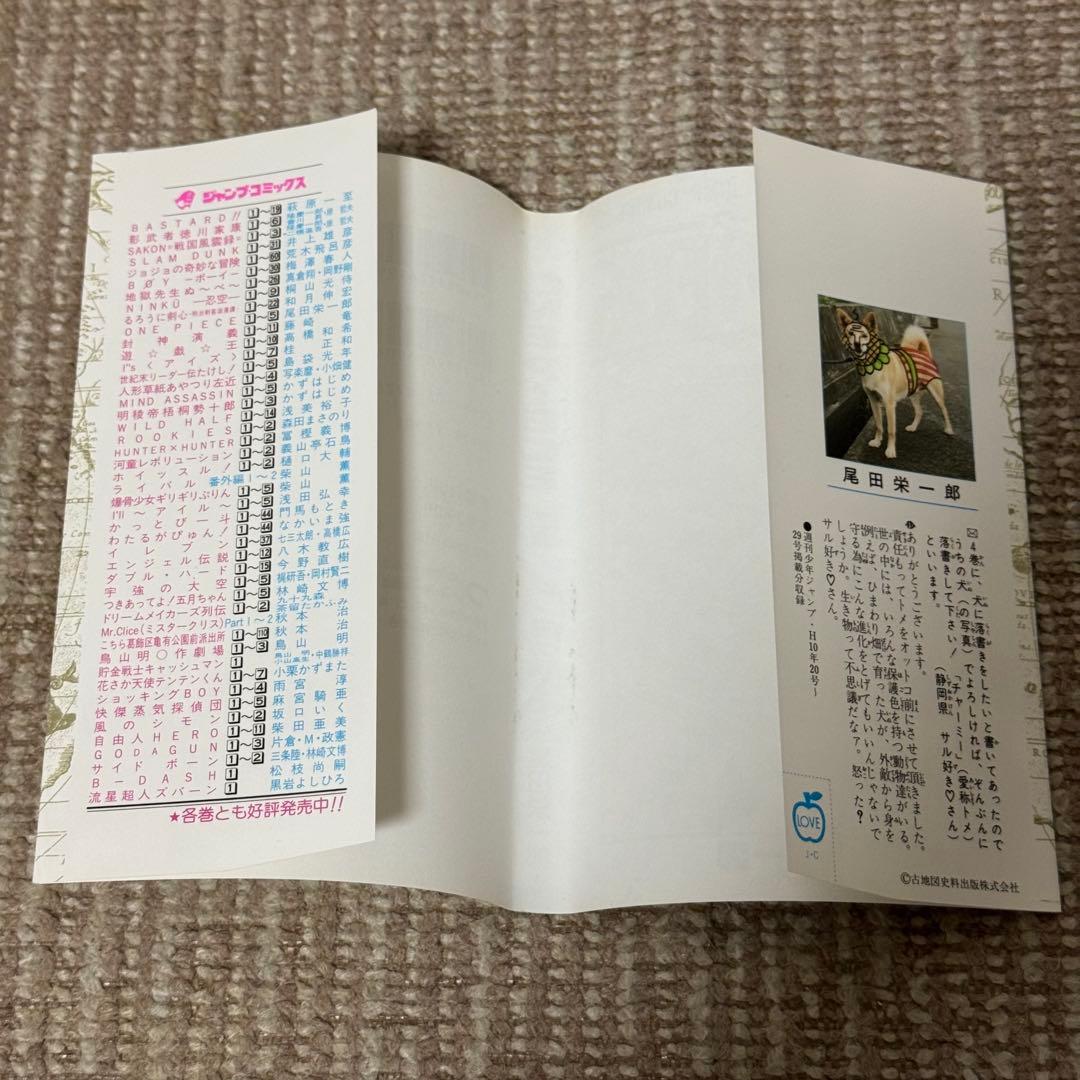 ジャンプ・コミックス
BASTARD!! 1〜19 萩原一至
影武者徳川家康 1〜6
SAKON-戦国風雲録- 1〜3
SLAM DUNK 1〜31 井上雄彦
ジョジョの奇妙な冒険 荒木飛呂彦
BØY―ボーイ― 梅澤春人
地獄先生ぬ〜べ〜 真倉翔・岡野剛
NINKŪ―忍空― 1〜9 桐山光侍
るろうに剣心 和月伸宏
ONE PIECE 1〜5 尾田栄一郎
封神演義 1〜11 藤崎竜
遊☆戯☆王 1〜10 高橋和希
I"s〈アイズ〉 1〜7 桂正和
世紀末リーダー伝たけし! 1〜5 島袋光年
人形草紙あやつり左近 1〜4 写楽麿・小畑健
MIND ASSASSIN 1〜5 かずはじめ
明稜帝梧桐勢十郎 1〜3 かずはじめ
WILD HALF 1〜14 浅美裕子
ROOKIES 1〜2 森田まさのり
HUNTER×HUNTER 1〜2 冨樫義博
河童レボリューション 1〜2 義山亭石鳥
ホイッスル! 1〜2 樋口大輔
ライバル 番外編1〜2 柴山薫
爆骨少女ギリギリぷりん 1〜5 柴山薫
I'll〜アイル〜 1〜5 浅田弘幸
かっとび一斗 門馬もとき
わたるがぴゅん! なかいま強
イレブン 七三太郎・高橋広
エンジェル伝説 八木教広
ダブル・ハード 今野直樹
宇強の大空 梶研吾・岡村賢二
つきあってよ!五月ちゃん 林崎文博
ドリームメイカーズ列伝 1〜2
Mr.Clice(ミスタークリス) Part1〜2 秋本治
こちら葛飾区亀有公園前派出所 1〜110 秋本治
鳥山明○作劇場 1〜3 鳥山明
貯金戦士キャッシュマン
花さか天使テンテンくん 1〜7 小栗かずまた
ショッキングBOY 1〜4 雨宮淳
快傑蒸気探偵団 1〜5 麻宮騎亜
風のシモン 坂口いく
自由人HERO 1〜11 柴田亜美
GODAGUN 1〜3 片倉・M・政憲
サイドボーン 1〜2 三条陸・林崎文博
B-DASH 1 松枝尚嗣
流星超人ズバーン 1 黒岩よしひろ
★各巻とも好評発売中!!
尾田栄一郎
4巻に、犬に落書きをしたいと書いてあったので
うちの犬(の写真)でよろしければ、ぞんぶんに
落書きして下さい!「チャーミー」(愛称トメ)
といいます。 (静岡県 サル好き♡さん)
ありがとうございます。
責任もってトメをオットコ前にさせて頂きました。
世の中には、いろんな保護色を持つ動物達がいる。
例えば、ひまわり畑で育った犬が、外敵から身を
守る為にこんな進化をとげてもいいんじゃないで
しょうか。生き物って不思議だなァ。怒った?
サル好き♡さん。
●週刊少年ジャンプ・H10年20号〜
29号掲載分収録
LOVE
J・C
©古地図史料出版株式会社